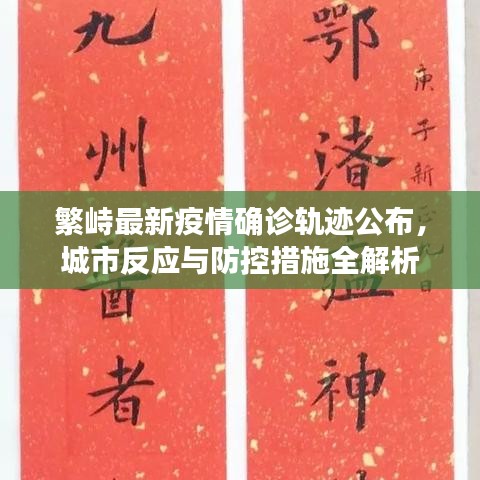 庚子新
鄂渚
神
九州
者
繁峙最新疫情确诊轨迹公布，
城市反应与防控措施全解析